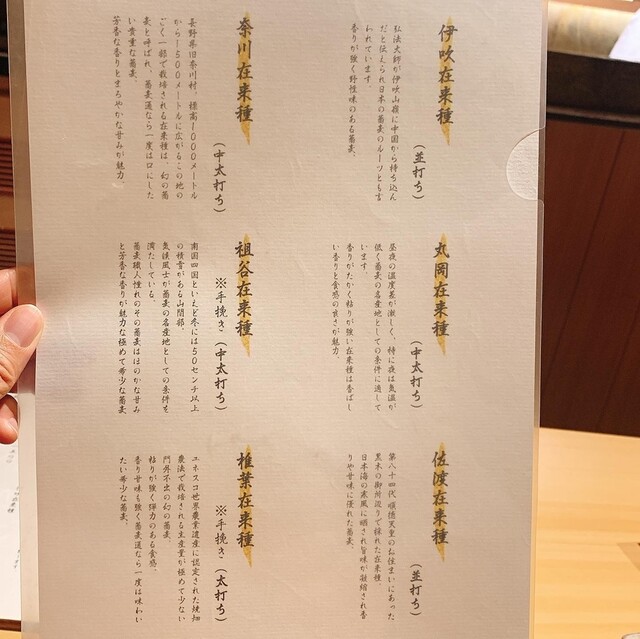 伊吹在来種
(並打ち)
弘法大師が伊吹山麓に中国から持ち込ん
だと伝えられ日本の蕎麦のルーツとも言
われています。
香りが強く野性味のある蕎麦。
奈川在来種
(中太打ち)
長野県旧奈川村。標高1000メートル
から1500メートルに広がるこの地の
ごく一部で栽培される在来種は、幻の蕎
麦と呼ばれ、蕎麦通なら一度は口にした
い貴重な蕎麦。
芳香な香りとまろやかな甘みが魅力。
丸岡在来種
(中太打ち)
昼夜の温度差が激しく、特に夜は気温が
低く蕎麦の名産地としての条件に適して
います。
香りがたかく粘りが強い在来種は香ばし
い香りと食感の良さが魅力。
祖谷在来種
※手挽き(中太打ち)
南国四国といえど冬には50センチ以上
の積雪がある山間部。
気候風土が蕎麦の名産地としての条件を
満たしている。
蕎麦職人憧れのその蕎麦はほのかな甘み
と芳香な香りが魅力な極めて希少な蕎麦
佐渡在来種
(並打ち)
第八十四代 順徳天皇のお住まいにあった
黒木の御所辺りで採れた在来種。
日本海の寒風に晒され旨味が凝縮され香
りや甘味に優れた蕎麦。
椎葉在来種
※手挽き(太打ち)
ユネスコ世界農業遺産に認定された焼畑
農法で栽培される生産量が極めて少ない
門外不出の幻の蕎麦。
粘りが強く弾力のある食感。
香り甘味も強く蕎麦通なら一度は味わい
たい希少な蕎麦。